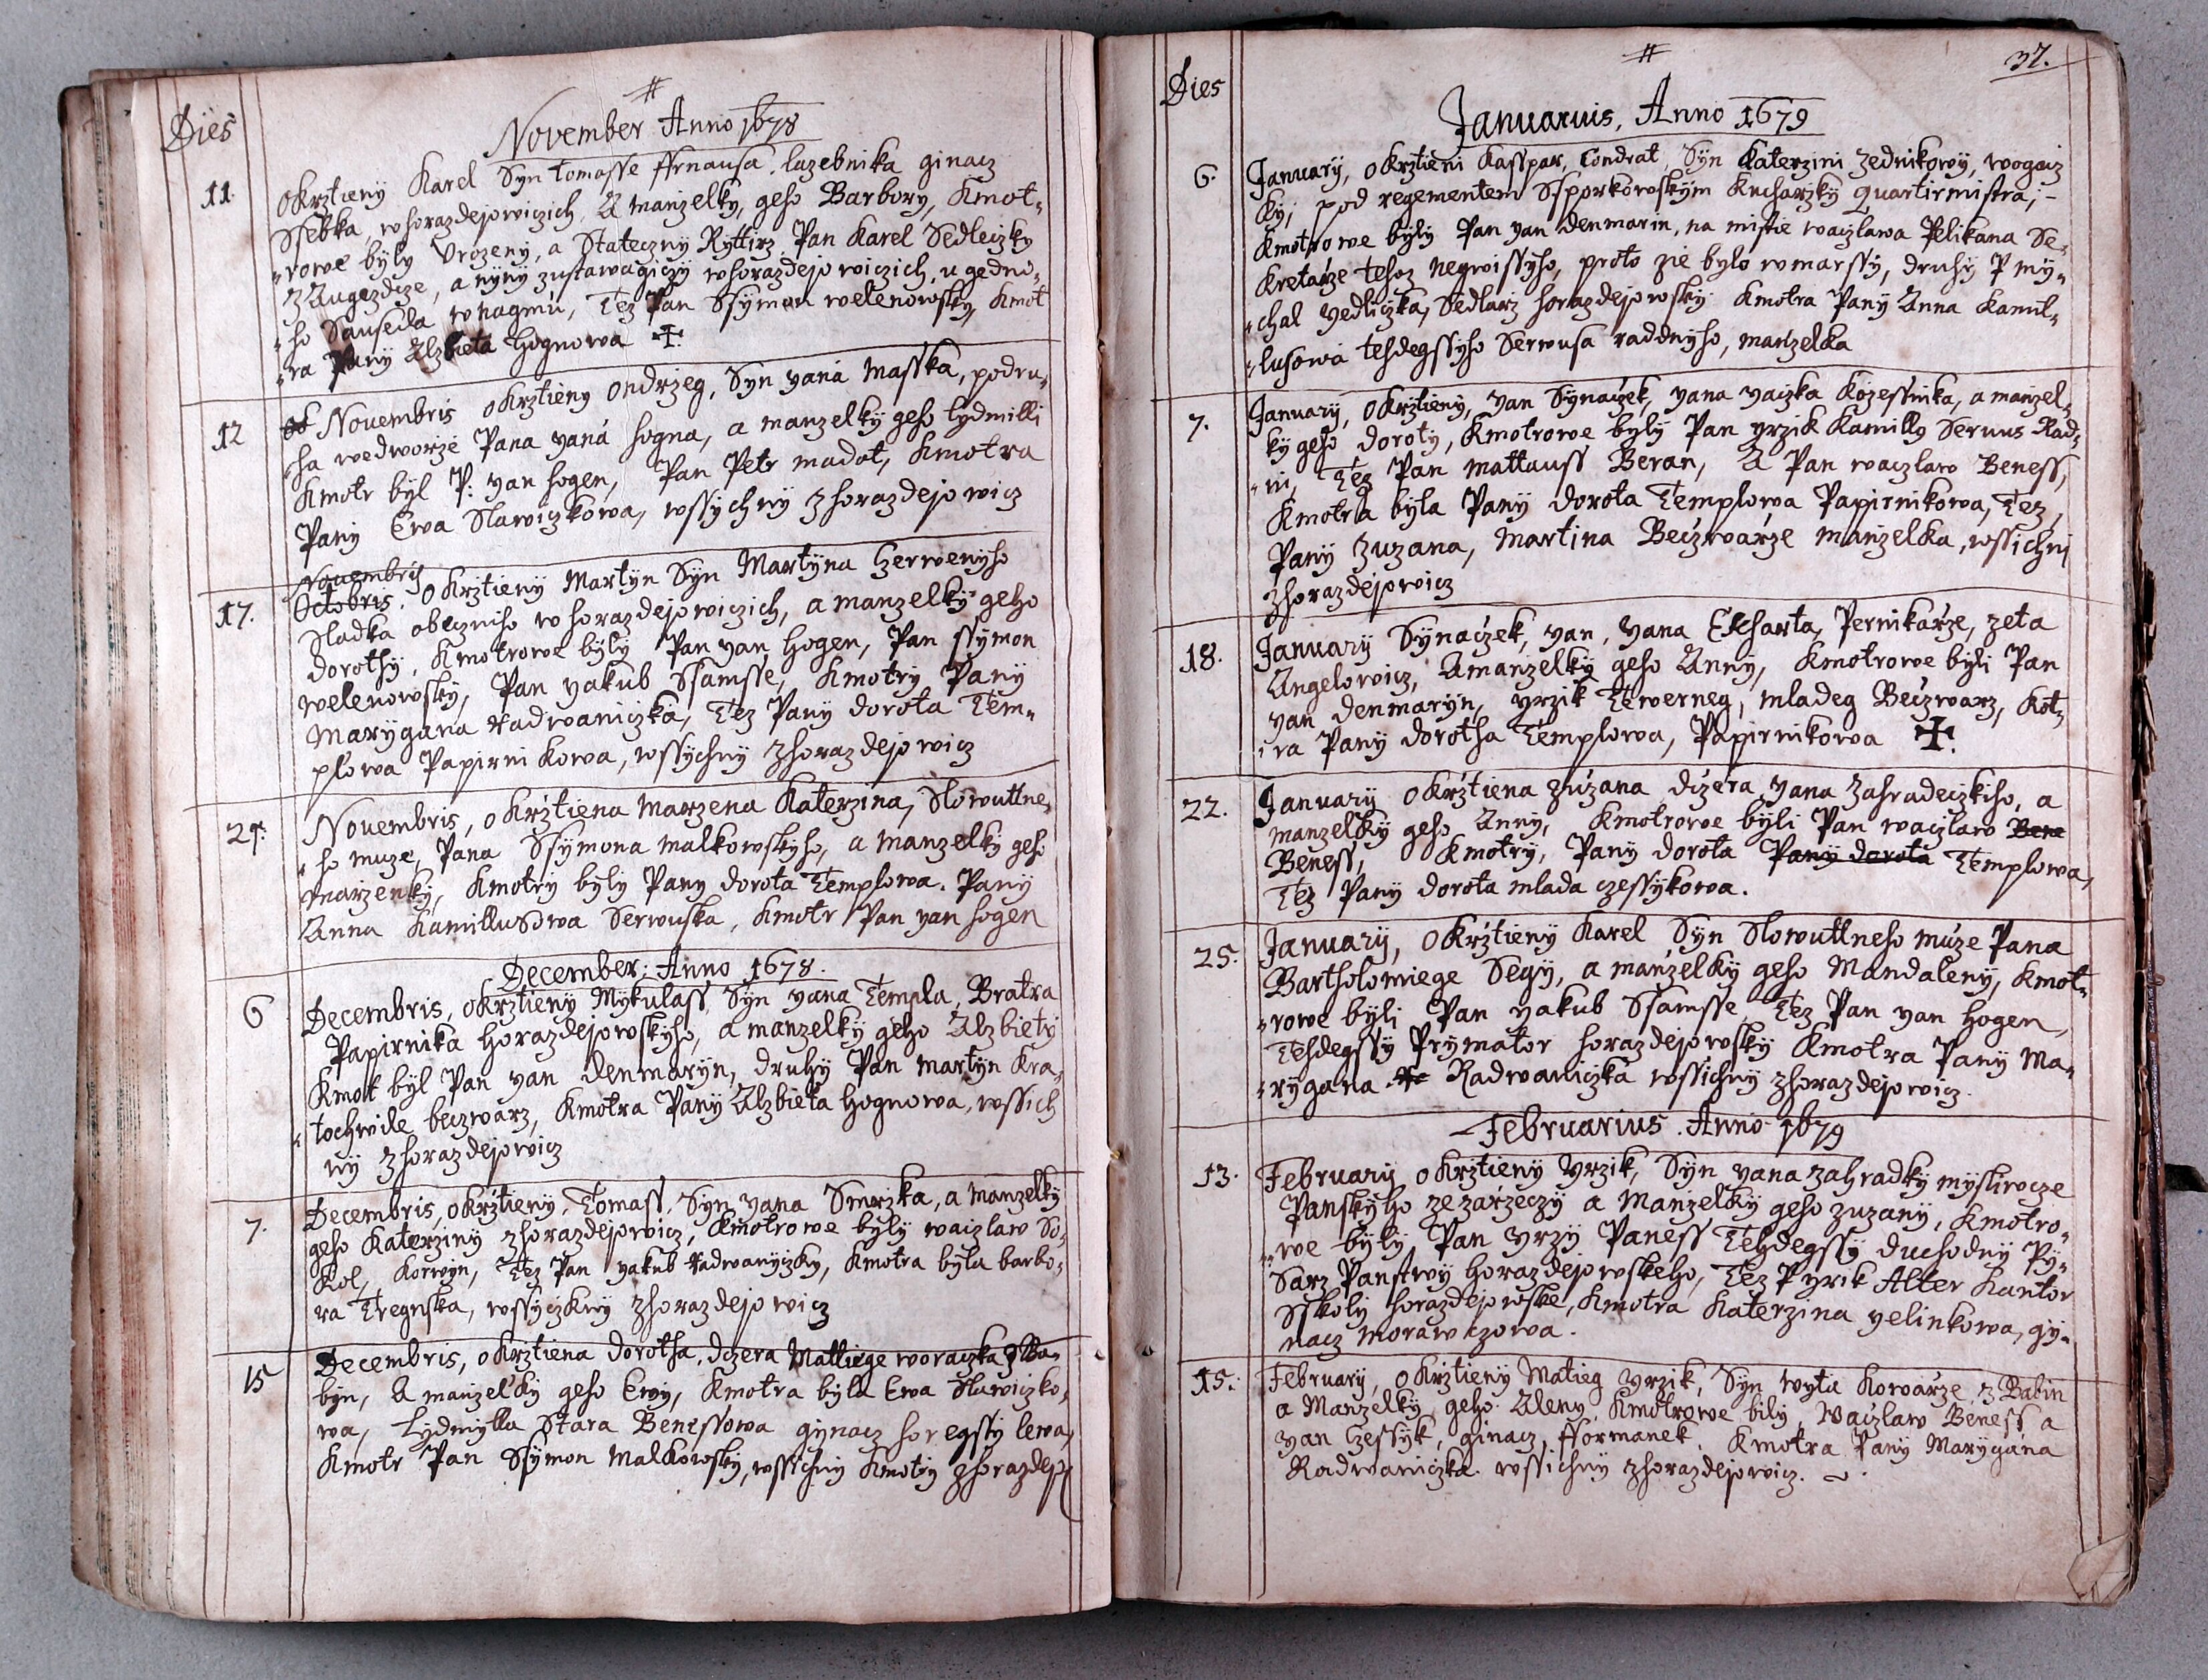 #
Dies
November Anno 1678
11. Okrztieny Karel Syn tomasse ffrnausa, lazebnika ginacz
Ssebka, w horazdejowiczich, A manzelky, geho Barbory, Kmot-
-rowe byly Vrozeny, a Stateczny Ryttirz, Pan Karel Sedleczky
z Augezdcze, a nyny zustawagiczy w horazdejowiczich, u gedno-
-ho Sauseda w nagmu, Tez Pan Ssymon welenowsky, Kmot
-ra Pany Alzbieta Hognowa ✠
12 Nouembris okrztieny ondrzeg, Syn yana Masska, podru-
-ha wedworze Pana yana hogna, a manzelky geho lydmilli
Kmotr byl P: yan hogen, Pan Petr madat, Kmotra
Pany Ewa Slawiczkowa, wssychny z horazdejowicz
Nouembris
17. Octobris, okrztieny Martyn Syn Martyna Czerwenyho
Sladka obeczniho w horazdejowiczich, a manzelky geho
dorothy, Kmotrowe byly Pan yan Hogen, Pan ssymon
welenowsky, Pan yakub Ssamsse, Kmotry Pany
Marygana radwaniczka, Tez Pany dorota Tem-
plowa Papirnikowa, wssychny z horazdejowicz
Nouembris, okrztiena Marzena Katerzina, Slowutne-
-ho muze, Pana Ssymona malkowskyho, a manzelky geho
marzenky, Kmotry byly Pany dorota Templowa. Pany
Anna KamilluSowa Serwuska, Kmotr Pan yan hogen
December: Anno 1678.
6 Decembris, okrztieny Mykulass, Syn yana Templa, Bratra
Papirnika Horazdejowskyho, a manzelky geho Alzbiety
Kmott byl Pan yan denmaryn, druhy Pan martyn Kra-
-tochwile beczwarz, Kmotra Pany Alzbieta Hognowa, wssich
ny z horazdejowicz
7. Decembris, okrztieny, Tomass, Syn yana Smrzka, a manzelky
geho Katerziny z horazdejowicz, Kmotrowe byly waczlaw So-
kol, Korwyn, Tez Pan yakub radwanyczky, Kmotra byla barbo-
ra Tregnska, wssyczkny z horazdejowicz
15 Decembris, okrztiena dorotha, dczera Mattiege woraczka z Ba-
byn, A manzelky geho Ewy, Kmotra byla Ewa Slawiczko-
wa, Lydmylla Stara Benessowa gynacz horegssy lewa,
Kmotr Pan Ssymon Malkowsky, wssichny Kmotry z horazdej
#
37.
Dies
Januarius, Anno 1679
6. January, okrztieni Kasspar, Condrat, Syn Katerzini zednikowy, wogacz
ky, pod regementem Ssporkowskym Kucharzky quartirmistra; -
Kmotrowe byly Pan yan denmarin, na mistie waczlawa Pelikana Se-
kretarze tehoz negwissyho, proto zie bylo w marssy, druhy P my-
-chal yedliczka, Sedlarz horazdejowsky. Kmotra Pany Anna Kamil-
-lusowa tehdegssyho Serwusa raddnyho, manzelka
7. January, okrztieny, yan Synaczek, yana yaczka Kozessnika, a manzel-
ky geho doroty, Kmotrowe byly Pan yrzik Kamilly Seruus Rad-
-ni, Tez Pan mattauss Beran, A Pan waczlaw Beness,
Kmotra byla Pany dorota Templowa Papirnikowa, Tez,
Pany Zuzana, Martina Beczwarze manzelka, wssichni
z horazdejowicz
18. January Synaczek, yan, yana Ekharta, Pernikarze, zeta
Angelowicz, A manzelky geho Anny, Kmotrowe byli Pan
yan denmaryn, yrzik Tewerneg, mladeg Beczwarz, Kot-
-ra Pany dorotha Templowa, Papirnikowa ✠
22. January okrztiena Zuzana dczera yana Zahradeczkiho, a
manzelky geho Anny, Kmotrowe byli Pan waczlaw Bene
Beness, Kmotry, Pany dorota Pany dorota Templowa,
Tez Pany dorota mlada czessykowa.
25. January, okrztieny Karel Syn Slowuttneho muze Pana
Bartholomiege Segy, a manzelky geho Mandaleny, Kmot-
-rowe byli Pan yakub Ssamsse, Tez Pan yan Hogen,
Tehdegssy Prymator horazdejowsky Kmotra Pany Ma-
-rygana Radwaniczka wssichny z horazdejowicz.
Februarius. Anno 1679
13. February okrztieny Yrzik, Syn yana zahradky myslirocze
Panskyho ze zarzeczy a Manzelky geho zuzany, Kmotro-
-we byly Pan yrzy Paness Tehdegssy duchodny Py-
Sarz Panstwy horazdejowskeho, Tez P yrik Alter Kantor
Sskoly horazdejowske, Kmotra Katerzina yelinkowa, gy-
nacz morawczowa.
15. February, okrztieny Matieg Yrzik, Syn wyta Kowarze z Babin
a Manzelky geho Aleny, Kmotrowe bily, Waczlaw Beness a
yan Czessyk, ginacz fformanek. Kmotra Pany Marygana
Radwaniczka. wssichny z horazdejowicz.